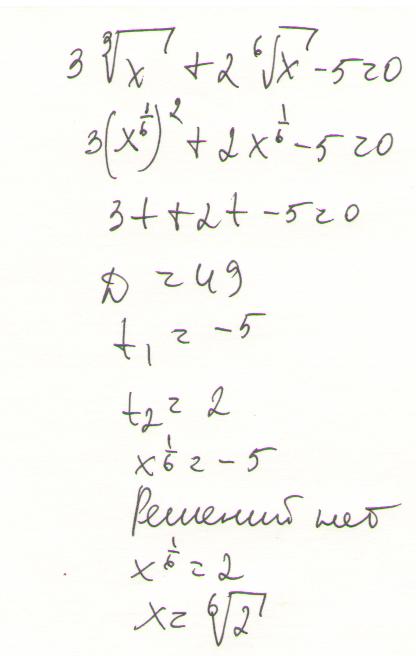 3∛x + 2 ⁶√x - 5 = 0
3(x^(1/6))² + 2x^(1/6) - 5 = 0
3t + 2t - 5 = 0
D = 49
t₁ = -5
t₂ = 2
x^(1/6) = -5
Решений нет
x^(1/6) = 2
x = ⁶√2